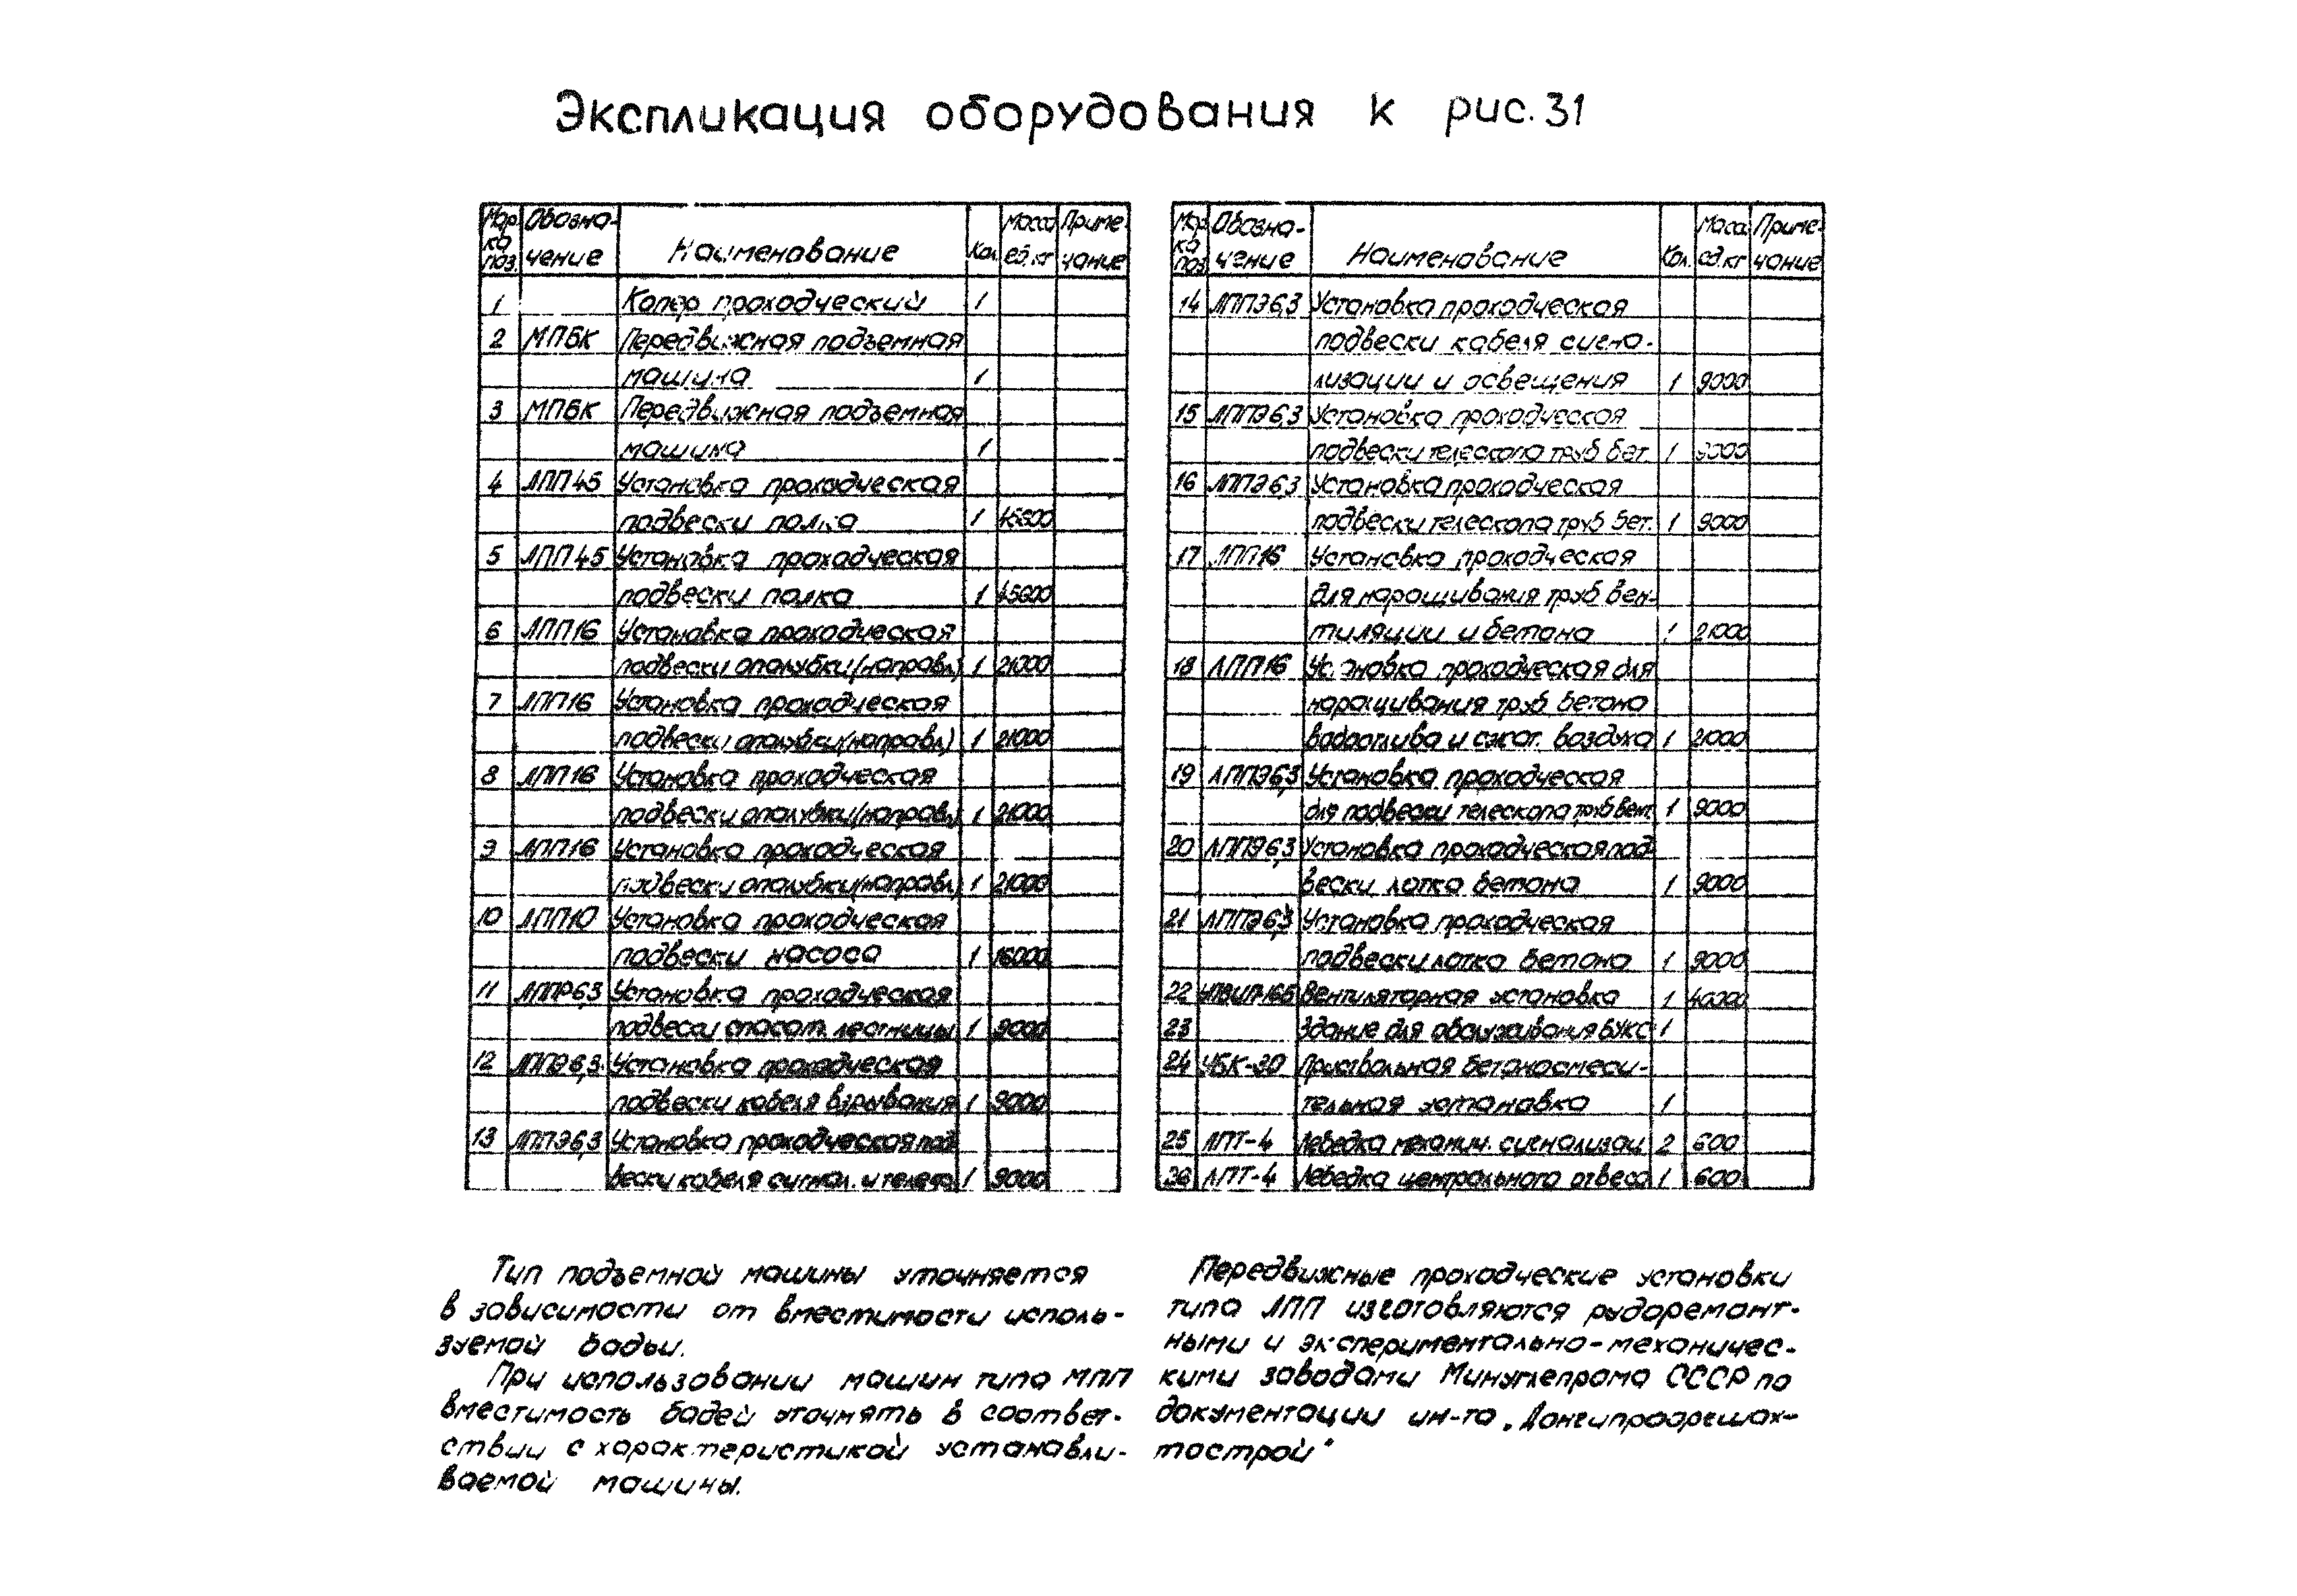 Экспликация оборудования к рис. 31
Мар-ка поз. Обозна-чение Наименование Кол. Масса ед. кг Приме-чание
1 Копер проходческий 1
2 МПБК Передвижная подъемная
машина 1
3 МПБК Передвижная подъемная
машина 1
4 ЛПП 45 Установка проходческая
подвески полка 1
5 ЛПП 45 Установка проходческая
подвески полка 1
6 ЛПП16 Установка проходческая
подвески опалубки(направл) 1 21000
7 ЛПП16 Установка проходческая
подвески опалубки(направл) 1 21000
8 ЛПП16 Установка проходческая
подвески опалубки(направл) 1 21000
9 ЛПП16 Установка проходческая
подвески опалубки(направл) 1 21000
10 ЛПП10 Установка проходческая
подвески насоса 1 16000
11 ЛППР6,3 Установка проходческая
подвески спасат. лестницы 1 9000
12 ЛППЭ6,3 Установка проходческая
подвески кабеля взрывания 1 9000
13 ЛППЭ6,3 Установка проходческая под
вески кабеля сигнал. и телеф. 1 9000
Мар-ка поз Обозна-чение Наименование Кол. Масса ед. кг Приме-чание
14 ЛППЭ6,3 Установка проходческая
подвески кабеля сигна-
лизации и освещения 1 9000
15 ЛППЭ6,3 Установка проходческая
подвески телескопа труб бет. 1 9000
16 ЛППЭ6,3 Установка проходческая
подвески телескопа труб бет. 1 9000
17 ЛПП16 Установка проходческая
для наращивания труб вен-
тиляции и бетона 1 21000
18 ЛПП16 Установка проходческая для
наращивания труб бетона
водоотлива и сжат. воздуха 1 21000
19 ЛППЭ6,3 Установка проходческая
для подвески телескопа труб вент. 1 9000
20 ЛППЭ6,3 Установка проходческая под
вески лотка бетона 1 9000
21 ЛППЭ6,3 Установка проходческая
подвески лотка бетона 1 9000
22 Вентиляторная установка 1
23 Здание для обслуживания БУКС 1
24 УБК-30 Приствольная бетоносмеси-
тельная установка 1
25 ЛПТ-4 Лебедка механич. сигнализац. 2 600
26 ЛПТ-4 Лебедка центрального отвеса 1 600
Тип подъемной машины уточняется
в зависимости от вместимости исполь-
зуемой бадьи.
При использовании машин типа МПП
вместимость бадей уточнять в соответ-
ствии с характеристикой устанавли-
ваемой машины.
Передвижные проходческие установки
типа ЛПП изготовляются рудоремонт-
ными и экспериментально-механичес-
кими заводами Минуглепрома СССР по
документации ин-та „Донгипрооргшах-
тострой"